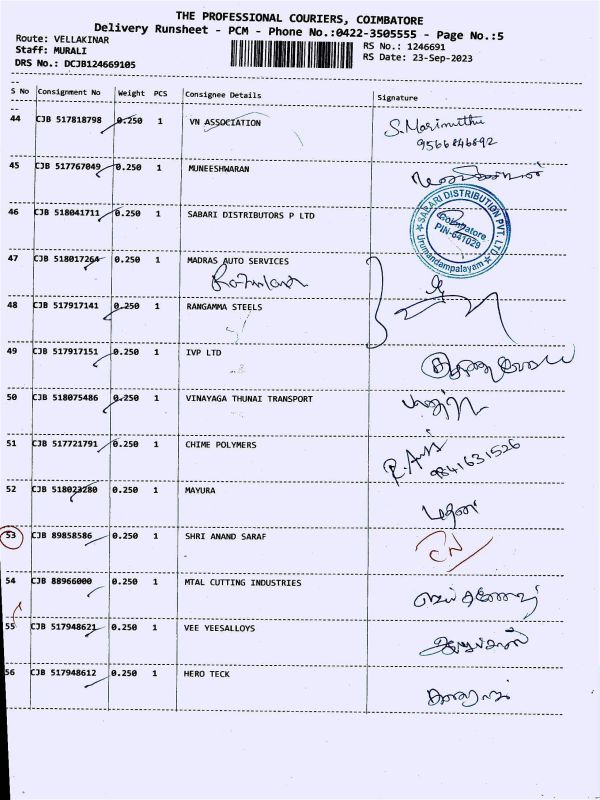 THE PROFESSIONAL COURIERS, COIMBATORE
Delivery Runsheet - PCM - Phone No.:0422-3505555 - Page No.:5
Route: VELLAKINAR
RS No.: 1246691
Staff: MURALI
RS Date: 23-Sep-2023
DRS No.: DCJB124669105
S No Consignment No Weight PCS Consignee Details Signature
44 CJB 517818798 0.250 1 VN ASSOCIATION S. Marimuthu
9566846892
45 CJB 517767049 0.250 1 MUNEESHWARAN
46 CJB 518041711 0.250 1 SABARI DISTRIBUTORS P LTD
SABARI DISTRIBUTION PVT. LTD
Coimbatore
PIN-641029
Urumandampalayam
47 CJB 518017264 0.250 1 MADRAS AUTO SERVICES
48 CJB 517917141 0.250 1 RANGAMMA STEELS
49 CJB 517917151 0.250 1 IVP LTD
50 CJB 518075486 0.250 1 VINAYAGA THUNAI TRANSPORT
51 CJB 517721791 0.250 1 CHIME POLYMERS
9841631526
52 CJB 518023280 0.250 1 MAYURA
53 CJB 89858586 0.250 1 SHRI ANAND SARAF
54 CJB 88966000 0.250 1 MTAL CUTTING INDUSTRIES
55 CJB 517948621 0.250 1 VEE YEESALLOYS
56 CJB 517948612 0.250 1 HERO TECK